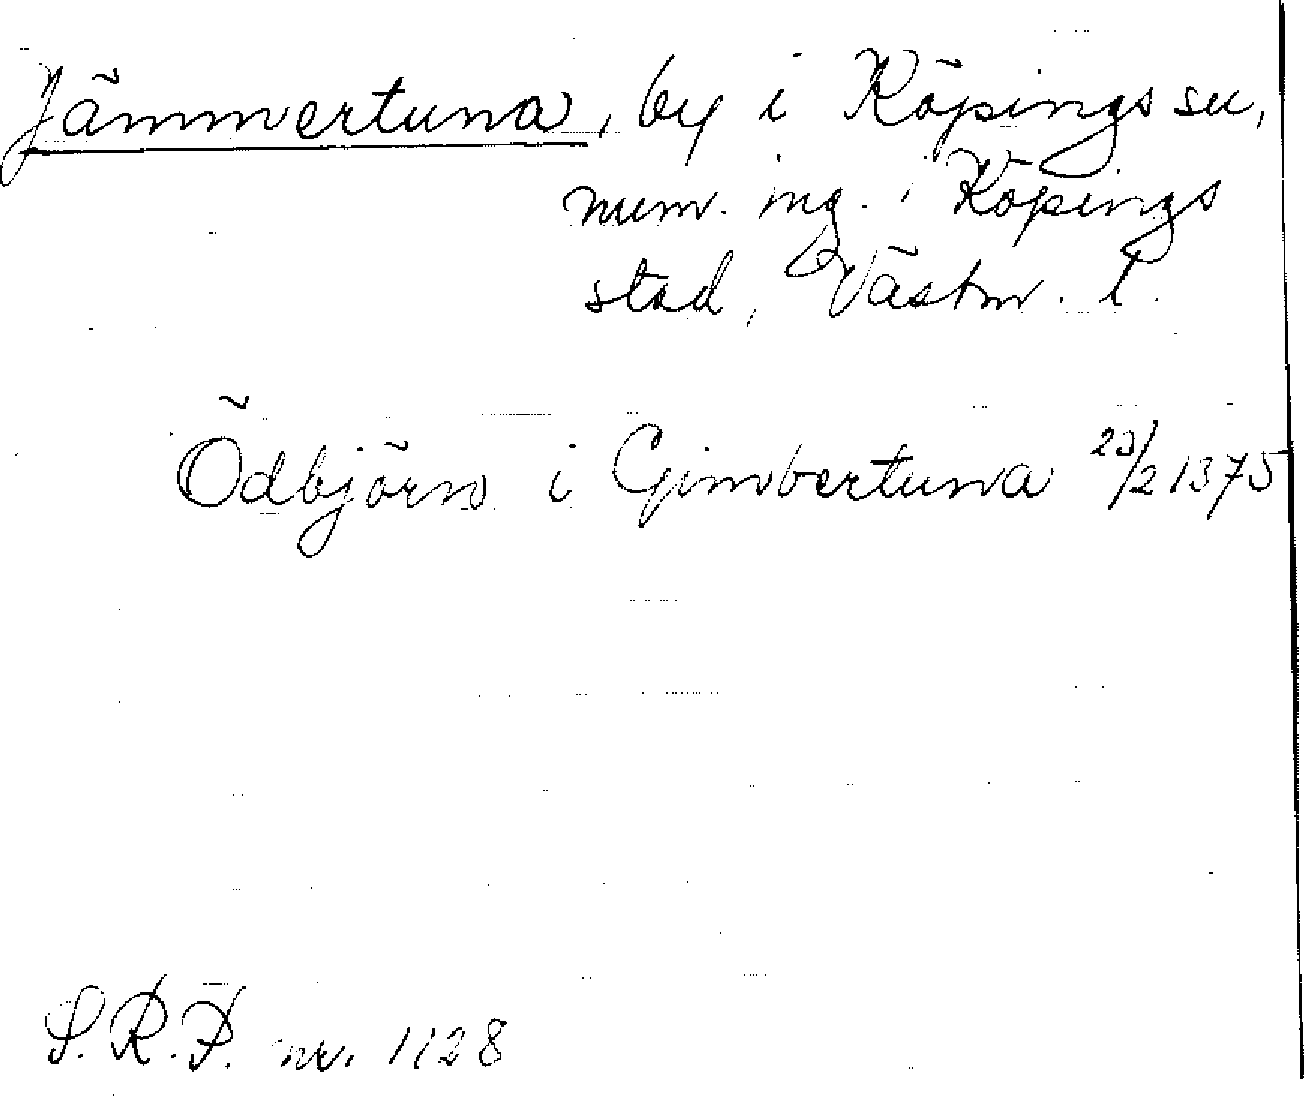 Jämmertuna, by i Köpings su,
num. ing. i Köpings
stad, Västm. l.
Ödbjörn i Gimbertuna 20/2 1375
S.R.P. nr. 1128